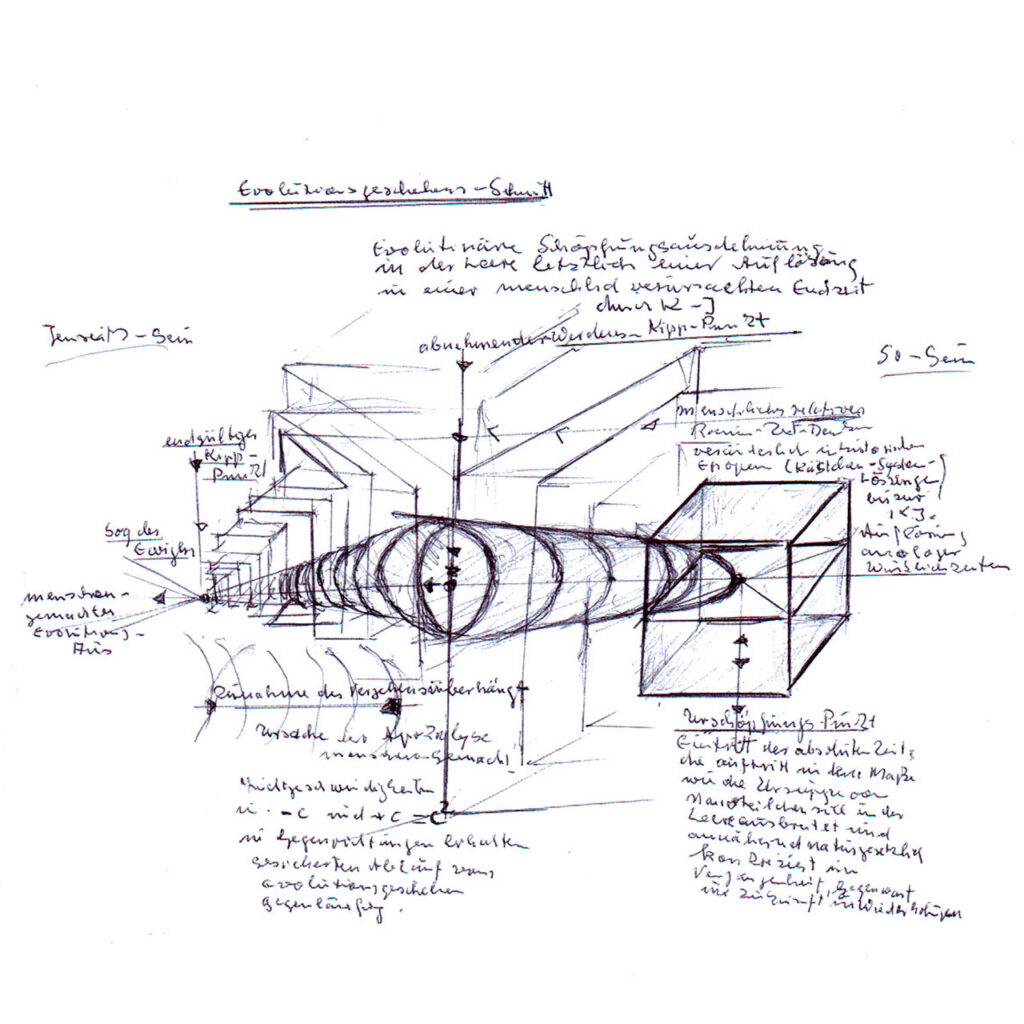 Evolutionsgeschehens-Schnitt
Evolutinäre Schöpfungsausdehnung
in der Leere letztlich einer Auflösung
in einer menschlich verursachten Endzeit
durch K-J
abnehmender Werdens-Kipp-Punkt
Jenseits-Sein
So-Sein
endgültiger
Kipp-
Punkt
Sog des
Ewigen
menschen-
gemachtes
Evolutions-
Aus
menschliches relatives
Raum-Zeit-Denken
veränderlich in historischen
Epochen (Kästchen-System-
Lösungen
bis zur
Auflösung
analoger
Wirklichkeiten
Zunahme des Verschensüberhangs
Ursache der Apokalypse
menschengemacht!
Lichtgeschwindigkeiten
in -c und +c = c²
in Gegenrichtungen erhalten
gesicherten Ablauf vom
Evolutionsgeschehen
gegenläufig.
Urschöpfungs-Punkt
Eintritt der absoluten Zeit,
die auftritt in dem Maße
wie die Ursuppe von
Nanoteilchen sich in der
Leere ausbreitet und
annähernd naturgesetzlich
in
Vergangenheit, Gegenwart
und Zukunft